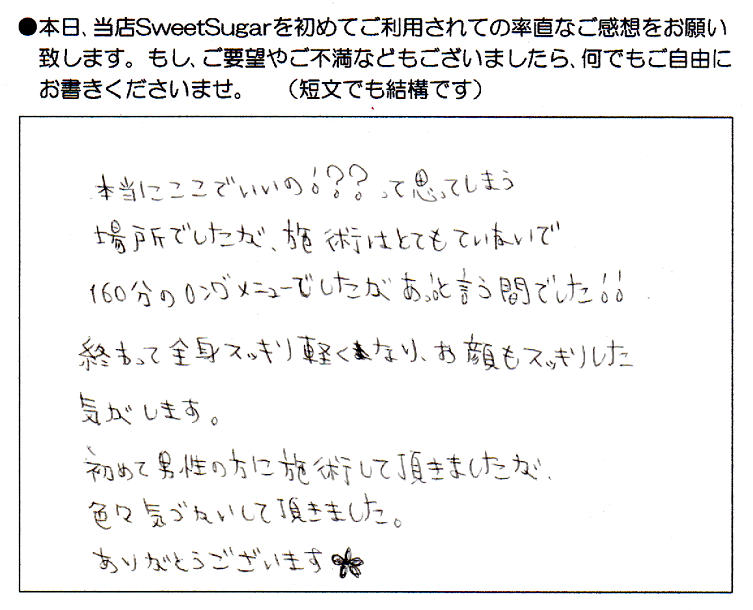 ●本日、当店SweetSugarを初めてご利用されての率直なご感想をお願い
致します。もし、ご要望やご不満などもございましたら、何でもご自由に
お書きくださいませ。　（短文でも結構です）
本当にここでいいの!??って思ってしまう
場所でしたが、施術はとてもていねいで
160分のロングメニューでしたがあっと言う間でした!!
終わって全身スッキリ軽くなり、お顔もスッキリした
気がします。
初めて男性の方に施術して頂きましたが、
色々気づかいして頂きました。
ありがとうございます